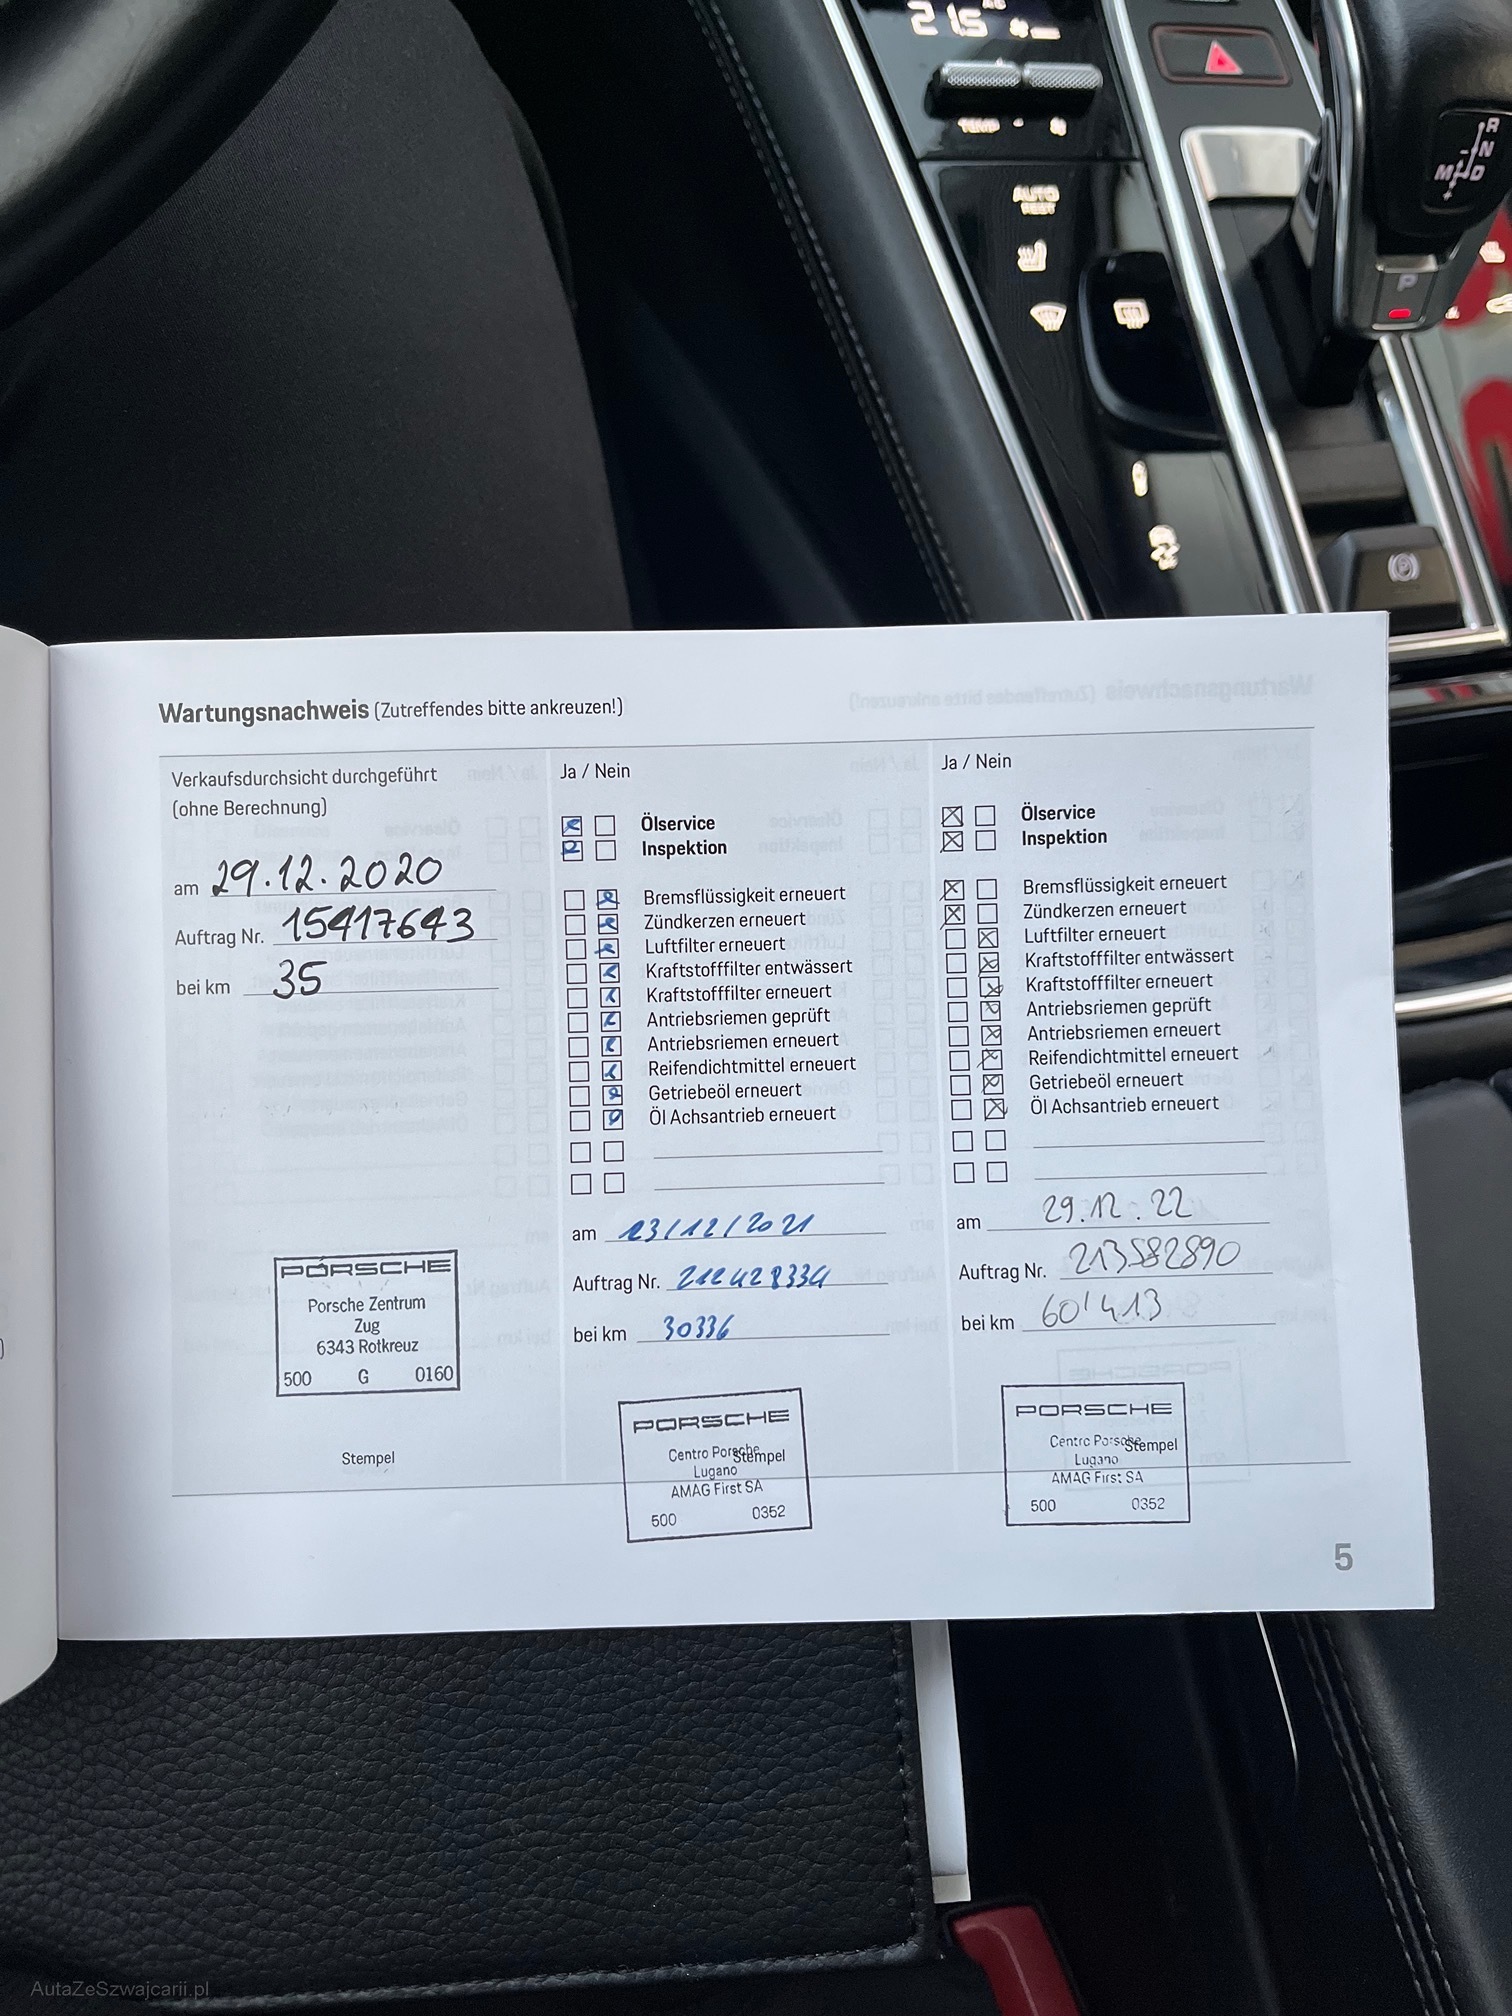 21.5
TEMP
AUTO
REST
R
N
M D
+
P
Wartungsnachweis (Zutreffendes bitte ankreuzen!)
Verkaufsdurchsicht durchgeführt
(ohne Berechnung)
am 29.12.2020
Auftrag Nr. 15417643
bei km 35
PORSCHE
Porsche Zentrum
Zug
6343 Rotkreuz
500 G 0160
Stempel
Ja / Nein
Ölservice
Inspektion
Bremsflüssigkeit erneuert
Zündkerzen erneuert
Luftfilter erneuert
Kraftstofffilter entwässert
Kraftstofffilter erneuert
Antriebsriemen geprüft
Antriebsriemen erneuert
Reifendichtmittel erneuert
Getriebeöl erneuert
Öl Achsantrieb erneuert
am 23/12/2021
Auftrag Nr. 212428334
bei km 30336
PORSCHE
Centro Porsche
Stempel
Lugano
AMAG First SA
500 0352
Ja / Nein
Ölservice
Inspektion
Bremsflüssigkeit erneuert
Zündkerzen erneuert
Luftfilter erneuert
Kraftstofffilter entwässert
Kraftstofffilter erneuert
Antriebsriemen geprüft
Antriebsriemen erneuert
Reifendichtmittel erneuert
Getriebeöl erneuert
Öl Achsantrieb erneuert
am 29.12.22
Auftrag Nr. 213582890
bei km 60'413
PORSCHE
Centro Porsche
Stempel
Lugano
AMAG First SA
500 0352
5
AutaZeSzwajcarii.pl